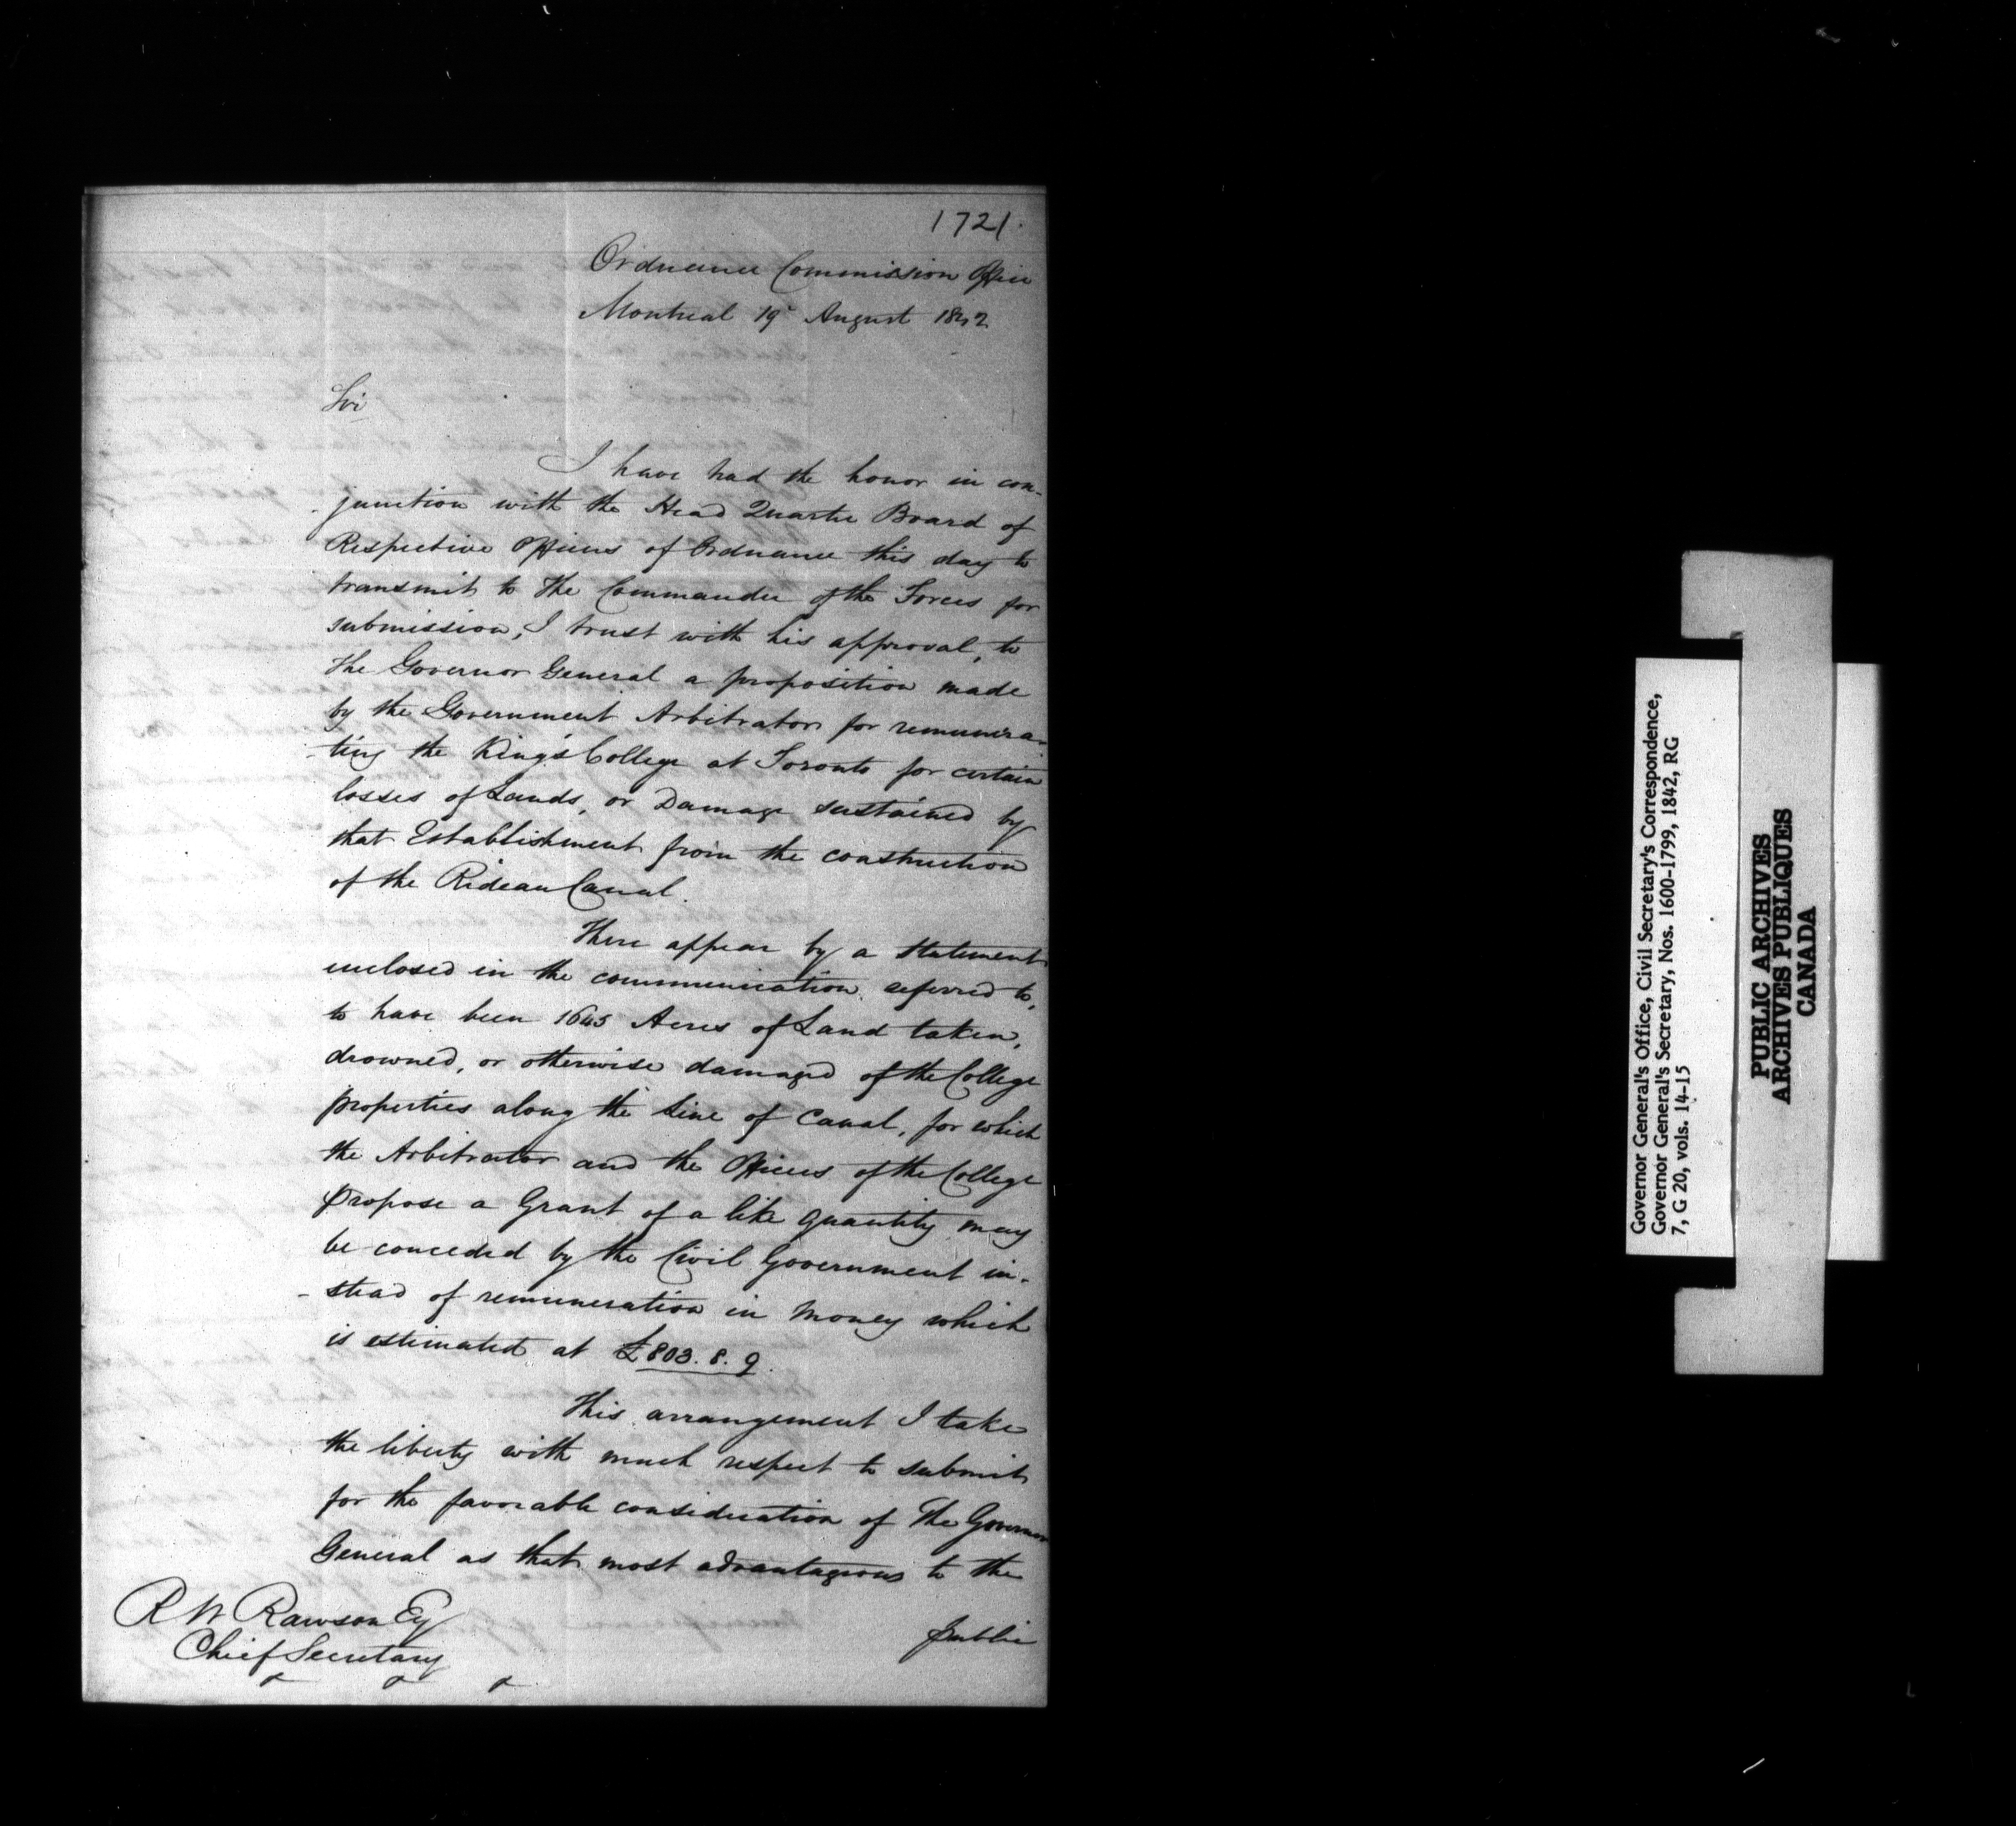 1721.
Ordnance Commission Office
Montreal 19th August 1842
Sir
I have had the honor in con-
-junction with the Head Quarter Board of
Respective Officers of Ordnance this day to
transmit to The Commander of the Forces for
submission, I trust with his approval, to
The Governor General a proposition made
by the Government Arbitrator for remunera-
-ting the King's College at Toronto for certain
losses of Lands, or Damage sustained by
that Establishment from the construction
of the Rideau Canal.
There appear by a statement
enclosed in the communication referred to,
to have been 1645 Acres of Land taken,
drowned, or otherwise damaged of the College
properties along the line of Canal, for which
the Arbitrator and the Officers of the College
propose a Grant of a like quantity may
be conceded by the Civil Government in-
-stead of remuneration in money which
is estimated at £803.8.9.
This arrangement I take
the liberty with much respect to submit
for the favorable consideration of The Governor
General as that most advantageous to the
public
R W Rawson Esq
Chief Secretary
Governor General's Office, Civil Secretary's Correspondence,
Governor General's Secretary, Nos. 1600-1799, 1842, RG
7, G 20, vols. 14-15
PUBLIC ARCHIVES
ARCHIVES PUBLIQUES
CANADA